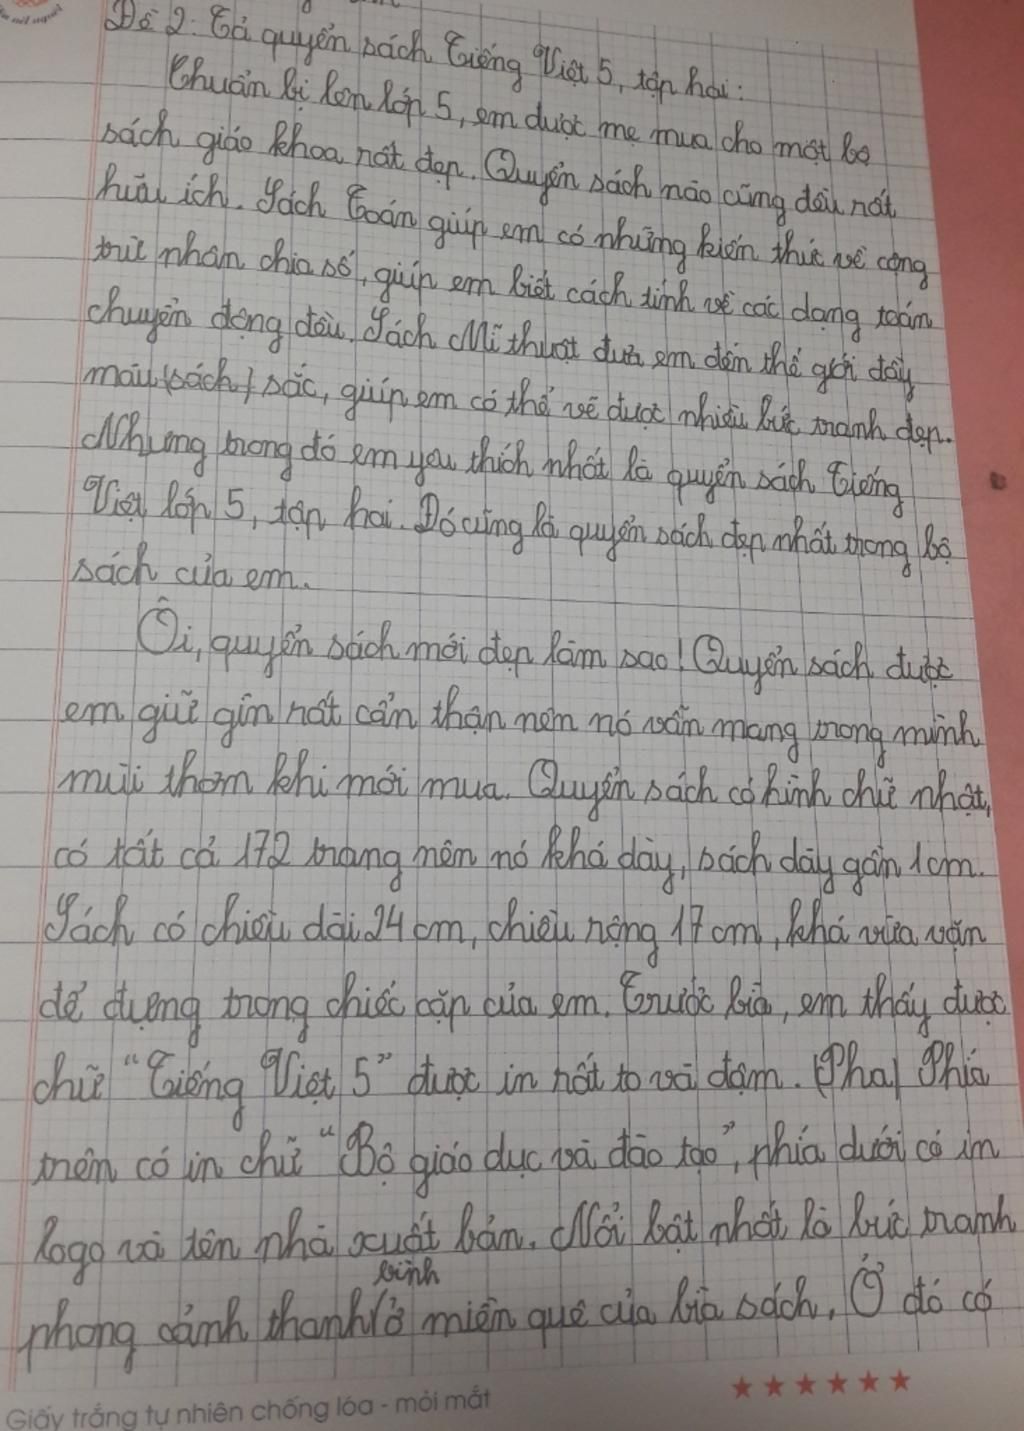 Đề 2: Tả quyển sách Tiếng Việt 5, tập hai:
Chuẩn bị lên lớp 5, em được mẹ mua cho một bộ
sách giáo khoa rất đẹp. Quyển sách nào cũng đều rất
hữu ích. Sách Toán giúp em có những kiến thức về cộng
trừ nhân chia số, giúp em biết cách tính về các dạng toán
chuyển động đều. Sách Mĩ thuật đưa em đến thế giới đầy
màu (sách) sắc, giúp em có thể vẽ được nhiều bức tranh đẹp.
Nhưng trong đó em yêu thích nhất là quyển sách Tiếng
Việt lớp 5, tập hai. Đó cũng là quyển sách đẹp nhất trong bộ
sách của em.
Ôi, quyển sách mới đẹp làm sao! Quyển sách được
em giữ gìn rất cẩn thận nên nó vẫn mang trong mình
mùi thơm khi mới mua. Quyển sách có hình chữ nhật,
có tất cả 172 trang nên nó khá dày, sách dày gần 1cm.
Sách có chiều dài 24 cm, chiều rộng 17 cm, khá vừa vặn
để đựng trong chiếc cặp của em. Trước bìa, em thấy được
chữ "Tiếng Việt 5" được in rất to và đậm. (Pha) Phía
trên có in chữ "Bộ giáo dục và đào tạo", phía dưới có in
logo và tên nhà xuất bản. Nổi bật nhất là bức tranh
bình
phong cảnh thanh ở miền quê của bìa sách. Ở đó có
Giấy trắng tự nhiên chống lóa - mỏi mắt